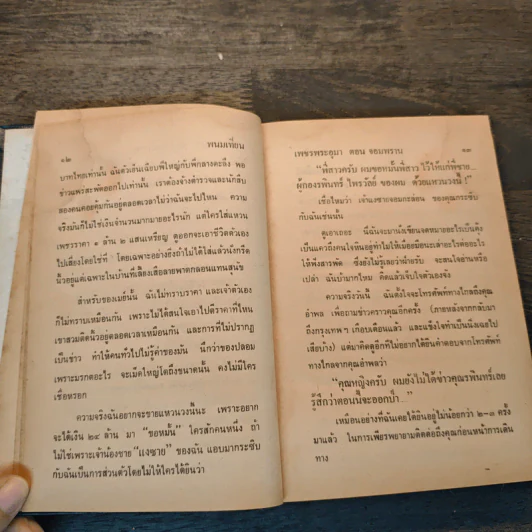 ๑๒
พนมเทียน
บาทไทยเท่านั้น ฉันตัวเย็นเฉียบพี่ใหญ่กับพี่กลางตะลึง พอ
ข่าวแพร่สะพัดออกไปเท่านั้น เราต้องจ้างตำรวจและนักสืบ
สองคนคอยคุ้มกันอยู่ตลอดเวลาไม่ว่าฉันจะไปไหน ความ
จริงมันก็ไม่ใช่เงินจำนวนมากมายอะไรนัก แต่ใครใส่แหวน
เพชรราคา ๑ ล้าน ๒ แสนเหรียญ ดูออกจะเอาชีวิตตัวเอง
ไปเสี่ยงโดยใช่ที่ โดยเฉพาะอย่างยิ่งถ้าไม่ได้ใส่แล้วนั่งกรีด
นิ้วอยู่แต่เฉพาะในบ้านที่เลี้ยงเสือลายพาดกลอนแทนสุนัข
สำหรับของเม่ยนั้น ฉันไม่ทราบราคา และเจ้าตัวเอง
ก็ไม่ทราบเหมือนกัน เพราะไม่ได้สนใจเอาไปตีราคาที่ไหน
เขาสวมติดนิ้วอยู่ตลอดเวลาเหมือนกัน และการที่ไม่ปรากฏ
เป็นข่าว ทำให้คนทั่วไปไม่รู้ค่าของมัน นึกว่าของปลอม
เพราะมรกตอะไร จะเม็ดใหญ่โตถึงขนาดนั้น คงไม่มีใคร
เชื่อหรอก
ความจริงฉันอยากจะขายแหวนวงนี้นะ เพราะอยาก
จะได้เงิน ๒๔ ล้าน มา "ขอหมั้น" ใครสักคนหนึ่ง ถ้า
ไม่ใช่เพราะเจ้าน้องชาย "แงซาย" ของฉัน แอบมากระซิบ
กับฉันเป็นการส่วนตัวโดยไม่ให้ใครได้ยินว่า
เพชรพระอุมา ตอน จอมพราน
๑๓
"พี่สาวครับ ผมขอหมั้นพี่สาว ไว้ให้แก่พี่ชาย...
ผู้กองรพินทร์ ไพรวัลย์ ของผม ด้วยแหวนวงนี้ !"
เชื่อไหมว่า เจ้าแงซายจอมกะล่อน ของคุณกระซิบ
กับฉันเช่นนั้น
ดูเอาเถอะ นี่ฉันจะมานั่งเขียนจดหมายอะไรเป็นคุ้ง
เป็นแควถึงคนใจหินอยู่ทำไมให้เมื่อยมือนะเล่า
ความจริงวันนี้ ฉันตั้งใจจะโทรศัพท์ทางไกลถึงคุณ
อำพล เพื่อถามข่าวคราวคุณอีกครั้ง (ภายหลังจากกลับมา
ถึงกรุงเทพ ฯ เกือบเดือนแล้ว และแข็งใจทำเป็นนิ่งเฉยไป
เสียบ้าง) แต่มาคิดดูอีกทีไม่อยากได้ยินคำตอบจากโทรศัพท์
ทางไกลจากคุณอำพลว่า
"คุณหญิงครับ ผมยังไม่ได้ข่าวคุณรพินทร์เลย
รู้สึกว่าตอนนี้จะออกป่า..."
เหมือนอย่างที่ฉันเคยได้ยินอยู่ไม่น้อยกว่า ๒-๓ ครั้ง
มาแล้ว ในการเพียรพยายามติดต่อถึงคุณก่อนหน้าการเดิน
ทาง